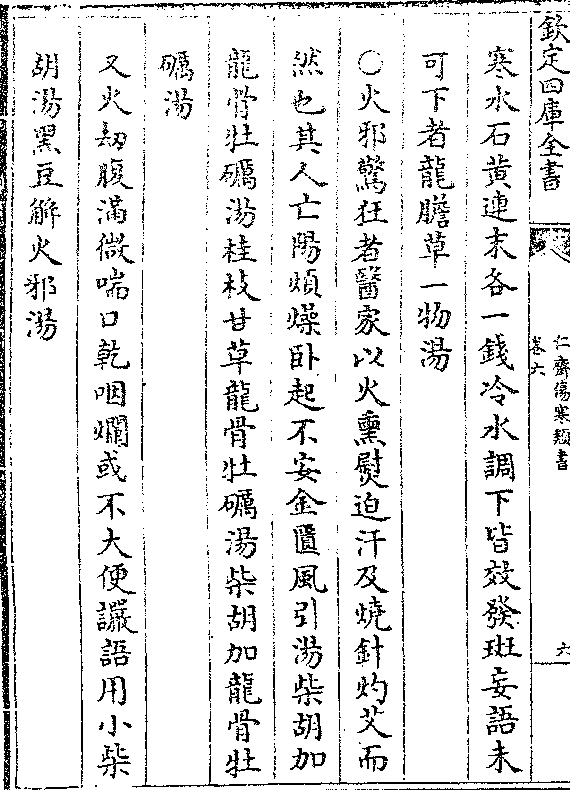 欽定四庫全書
仁齋傷寒類書
卷六
六
寒水石黄連末各一錢冷水調下皆效發斑妄語未
可下者龍膽草一物湯
○火邪驚狂者醫家以火熏熨迫汗及燒針灼艾而
然也其人亡陽煩燥卧起不安金匱風引湯柴胡加
龍骨牡礪湯桂枝甘草龍骨牡礪湯柴胡加龍骨牡
礪湯
又火刼腹滿微喘口乾咽爛或不大便讝語用小柴
胡湯黑豆解火邪湯